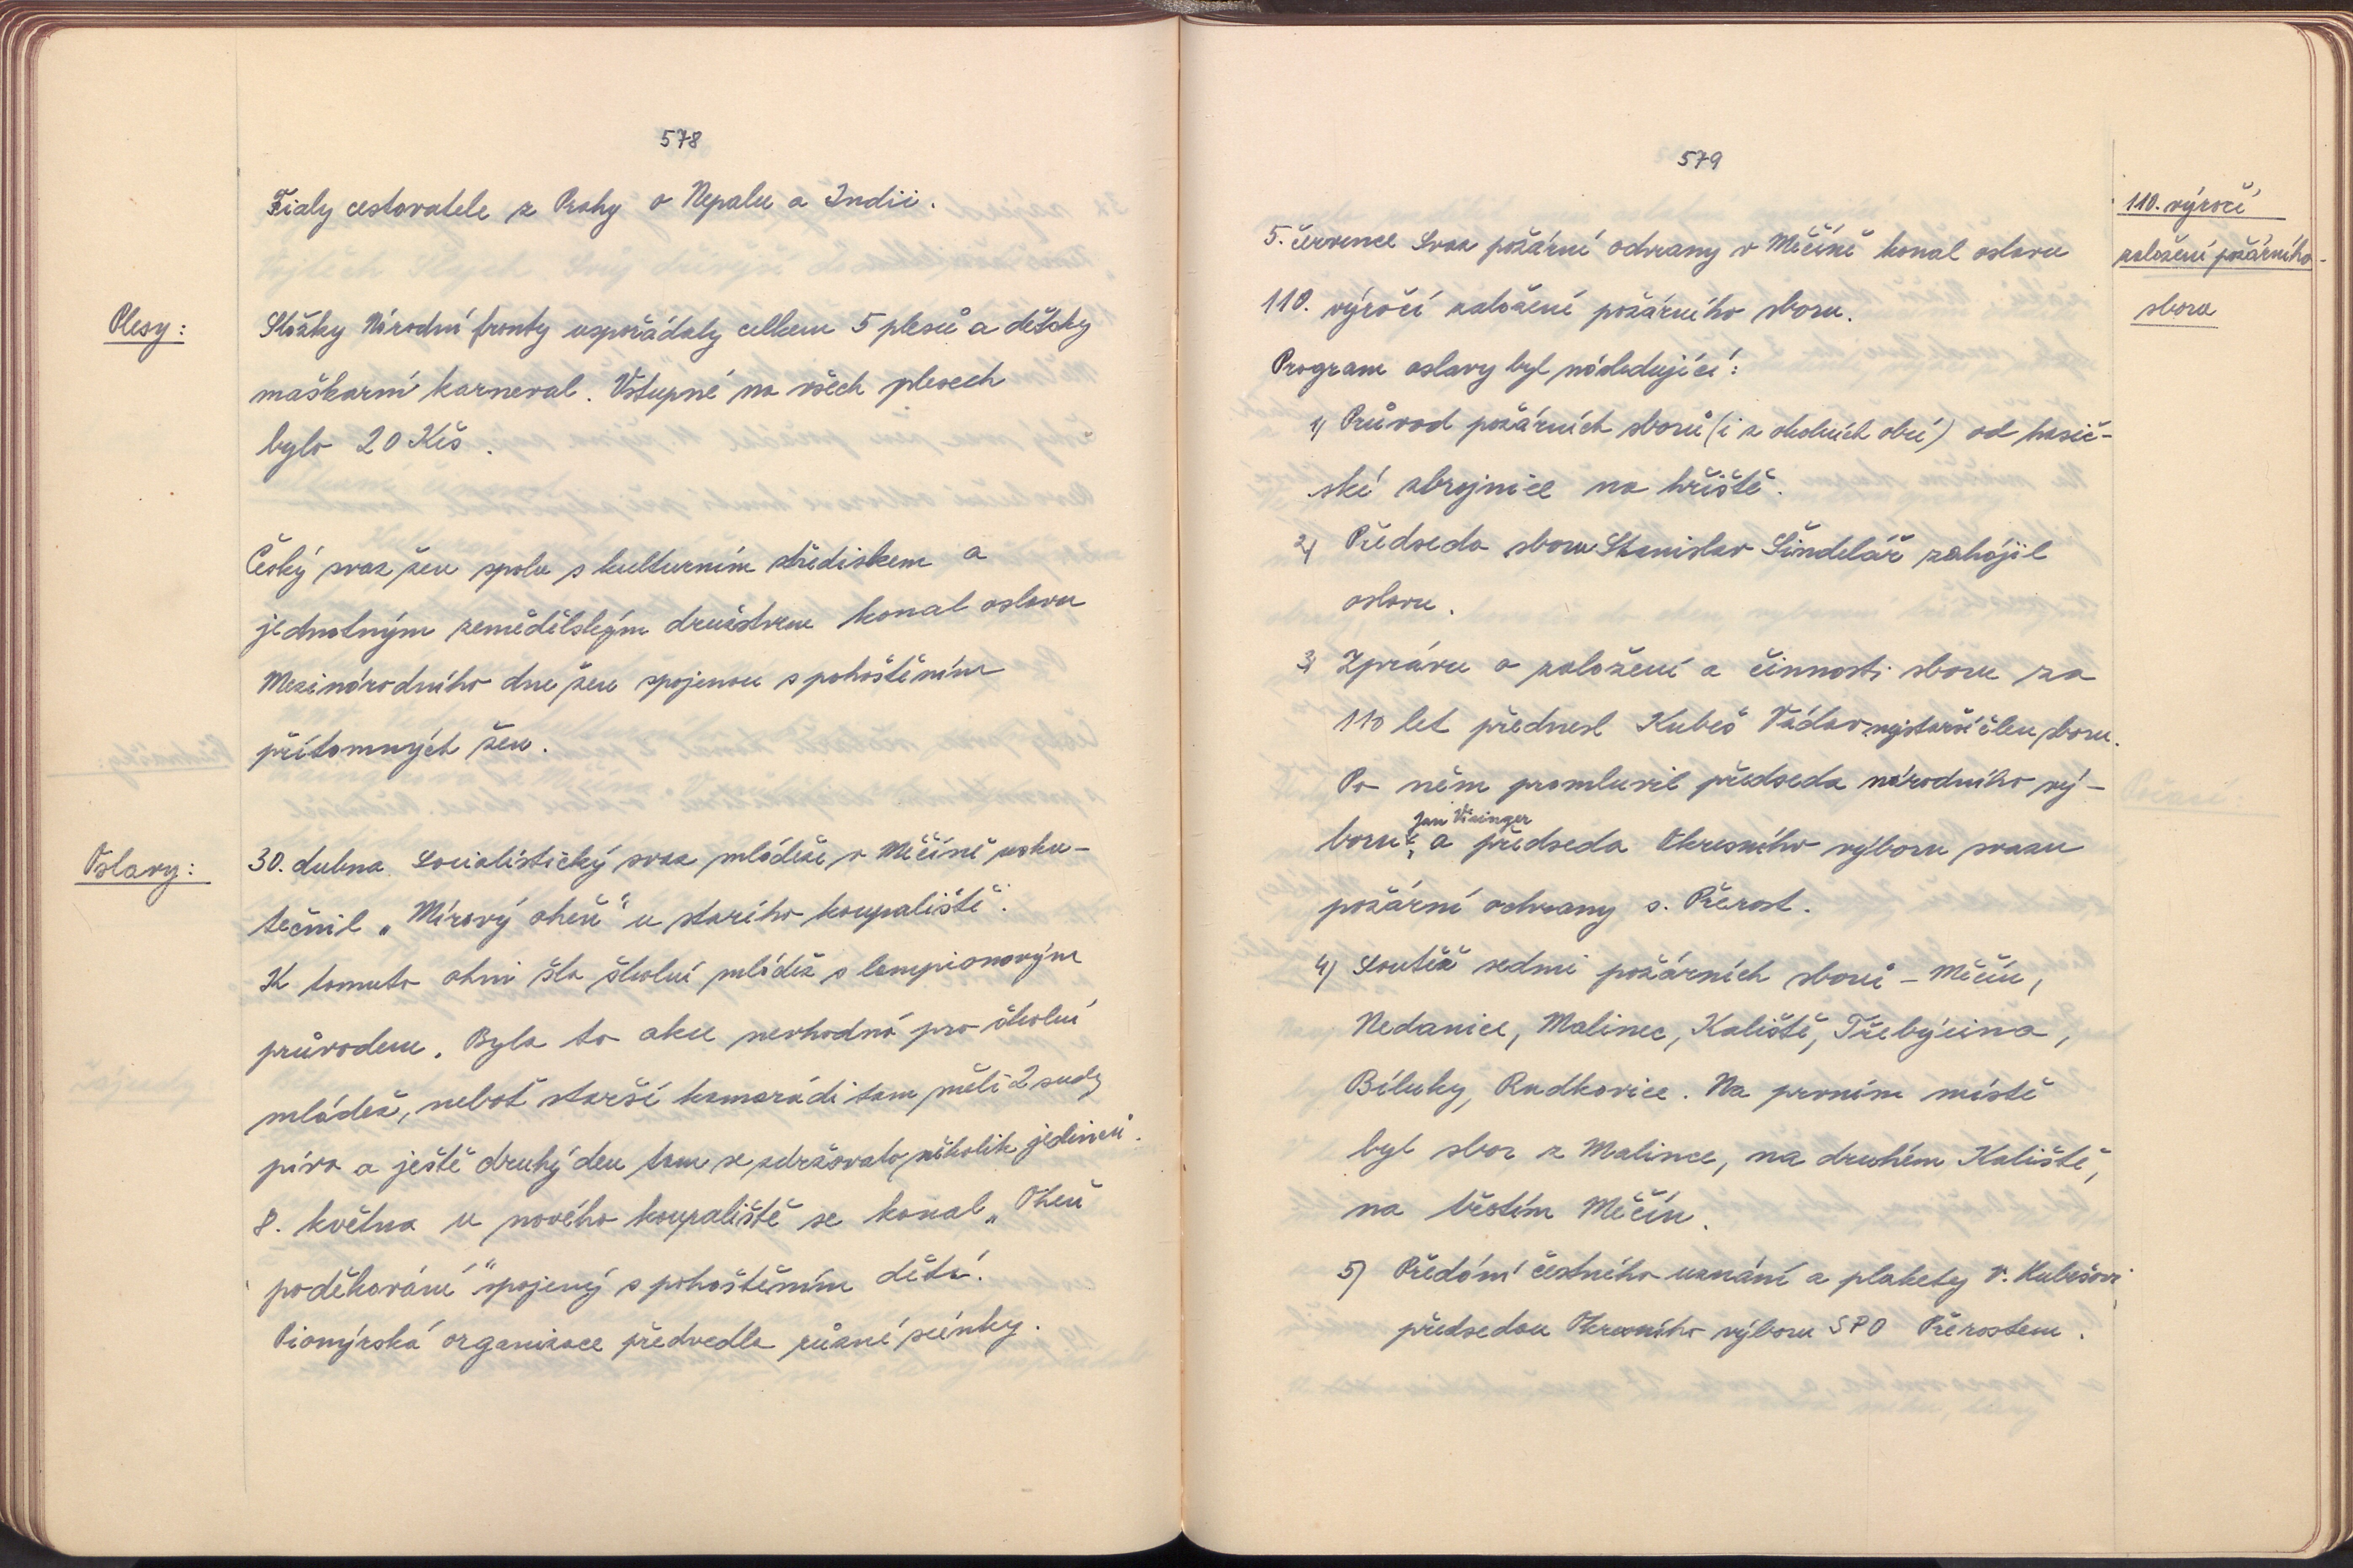 578
Fialy cestovatele z Prahy o Nepalu a Indii.
Plesy:
Složky Národní fronty uspořádaly celkem 5 plesů a dětský
maškarní karneval. Vstupné na všech plesech
bylo 20 Kčs.
Český svaz žen spolu s kulturním střediskem a
jednotným zemědělským družstvem konal oslavu
Mezinárodního dne žen spojenou s pohoštěním
přítomných žen.
Oslavy:
30. dubna Socialistický svaz mládeže v Měčíně usku-
tečnil „Mírový oheň" u starého koupaliště.
K tomuto ohni šla školní mládež s lampionovým
průvodem. Byla to akce nevhodná pro školní
mládež, neboť starší kamarádi tam měli 2 sudy
piva a ještě druhý den tam se zdržovalo několik jedinců.
8. května u nového koupaliště se konal „Oheň
poděkování" spojený s pohoštěním dětí.
Pionýrská organizace předvedla různé scénky.
579
110. výročí
založení požárního
sboru
5. července Svaz požární ochrany v Měčíně konal oslavu
110. výročí založení požárního sboru.
Program oslavy byl následující:
1) Průvod požárních sborů (i z okolních obcí) od hasič-
ské zbrojnice na hřiště.
2) Předseda sboru Stanislav Šindelář zahájil
oslavu.
3) Zprávu o založení a činnosti sboru za
110 let přednesl Kubeš Václav, nejstarší člen sboru.
Po něm promluvil předseda národního vý-
Jan
boru, a předseda Okresního výboru svazu
požární ochrany s. Přerost.
4) Soutěž sedmi požárních sborů - Měčín,
Nedanice, Malinec, Kaliště, Třebýcina,
Bíluky, Radkovice. Na prvním místě
byl sbor z Malince, na druhém Kaliště,
na třetím Měčín.
5) Předání čestného uznání a plakety V. Kubešovi
předsedou Okresního výboru SPO Přerostem.